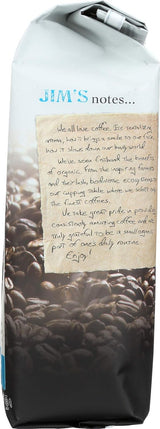 JIM'S notes...
We all love coffee. Its tantalizing
aroma, how it brings a smile to our face,
how it slows down our busy world.
We've seen firsthand the benefits
of organic, from the inspiring farmers
and their lush, biodiverse ecosystems to
our cupping table where we select only
the finest coffees.
We take great pride in providing
consistently amazing coffee and are
truly grateful to be a small organic
part of one's daily routine.
Enjoy!